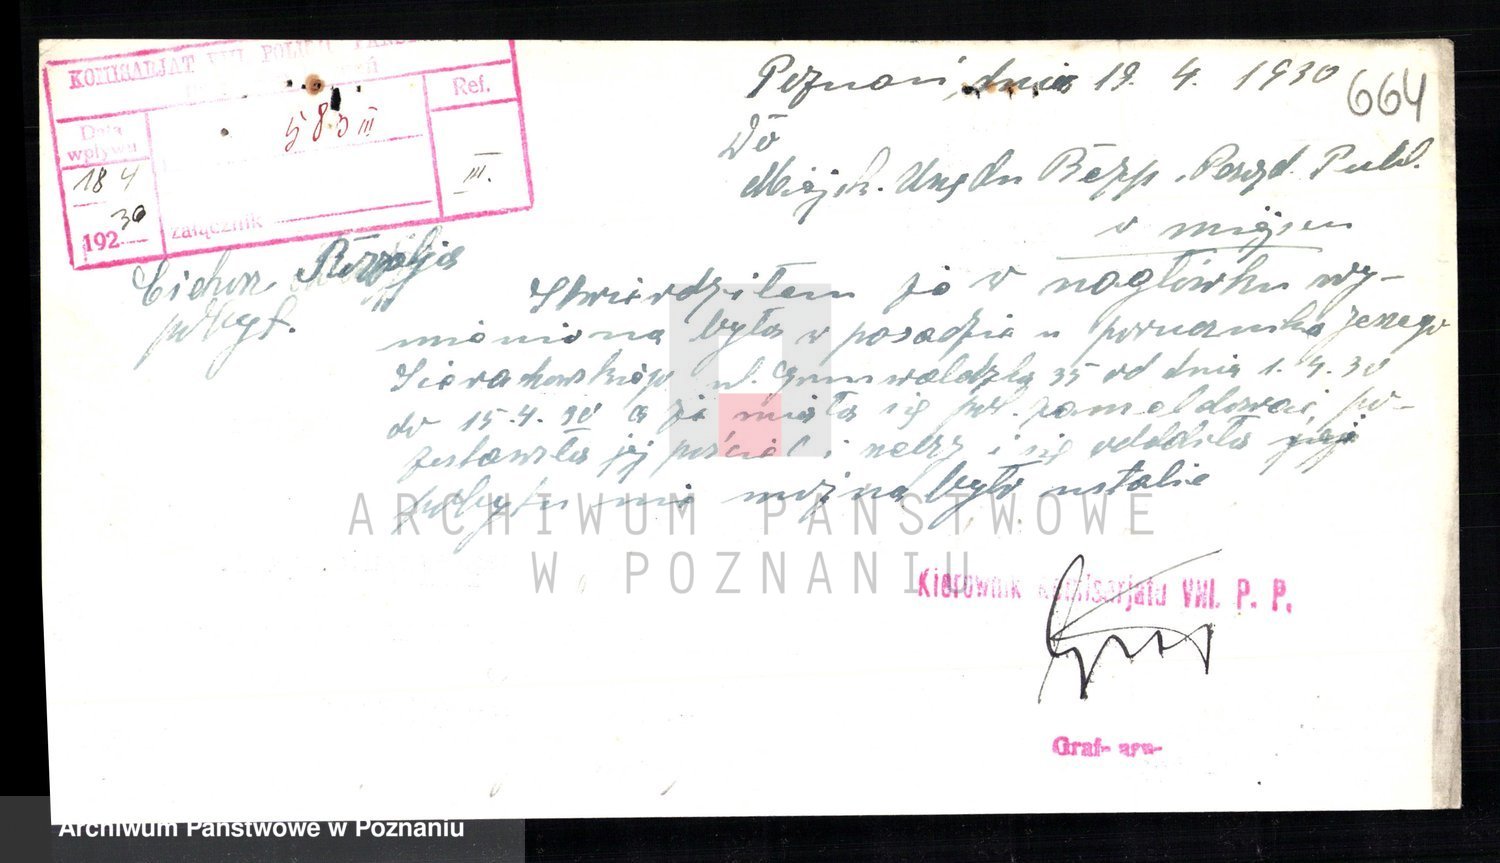 KOMISARJAT VIII POLICJI
Ref.
Data
wpływu
583 III
18 4
30
192
III.
załącznik
Poznań, dnia 19. 4. 1930
664
Do
Miejsk. Urzędu Bezp. Porząd. Publ.
w miejscu
Cichosz Rozalja
pobyt.
Stwierdziłem że w nagłówku wy-
mieniona była w posadzie u porucznika Jerzego
Sierakowskiego ul. Grunwaldzka 35 od dnia 1. 4. 30
do 15. 4. 30 a że miała się pol. zameldować, po-
zostawiła jej pościel i rzeczy i się oddaliła jej
pobytu nie można było ustalić
Kierownik Komisarjatu VIII. P. P.
Graf-
ARCHIWUM PAŃSTWOWE
W POZNANIU
Archiwum Państwowe w Poznaniu